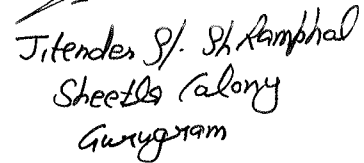 Jitender S/. Sh Ramphal
Sheetla Calony
Gurugram